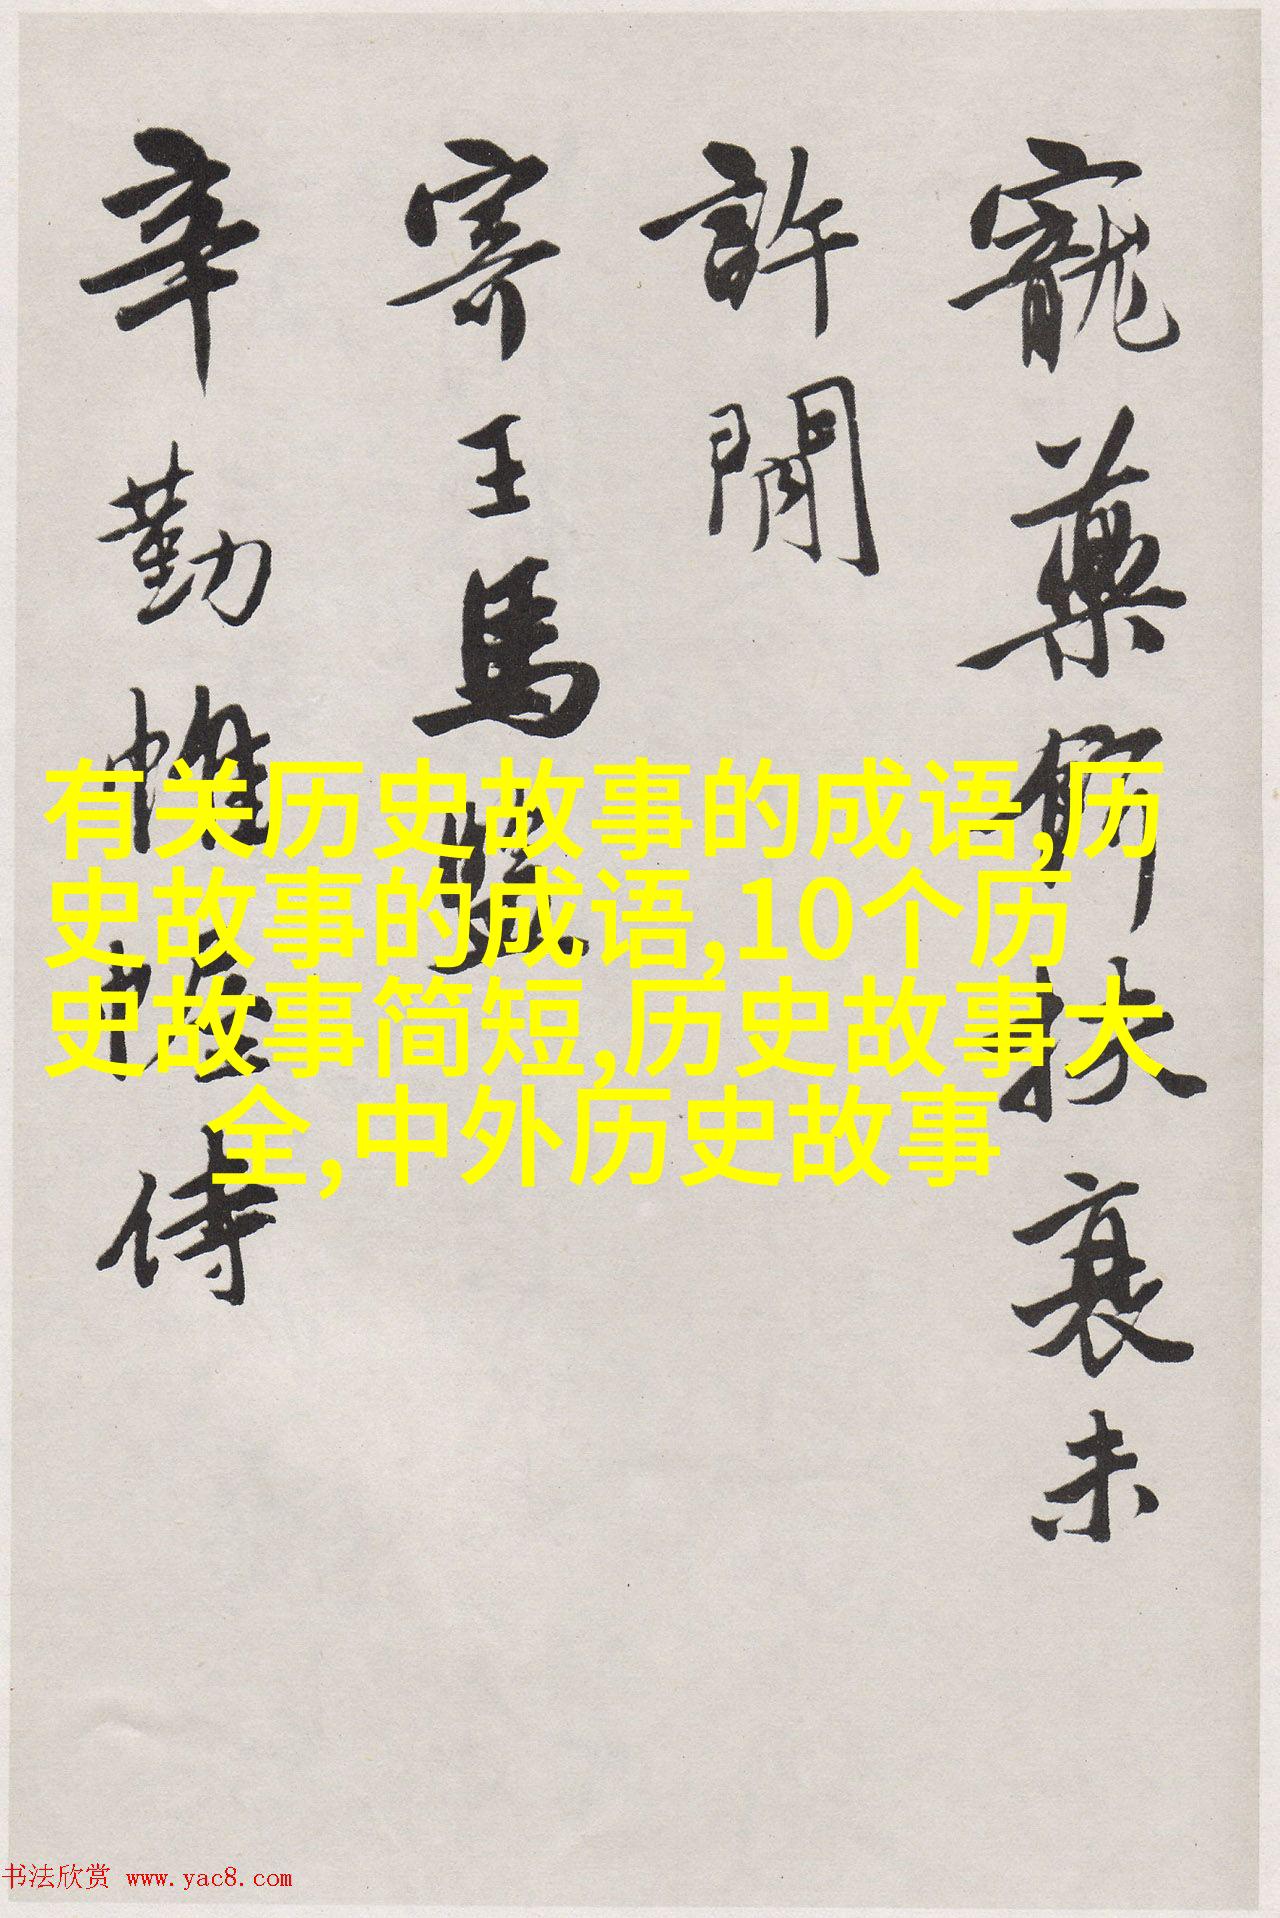 寵藥餌扶衰未
許閒
寄王馬監
辛勤帷幄侍
有关历史故事的成语,历
史故事的成语,10个历
史故事简短,历史故事大
全,中外历史故事
书法欣赏 www.yac8.com